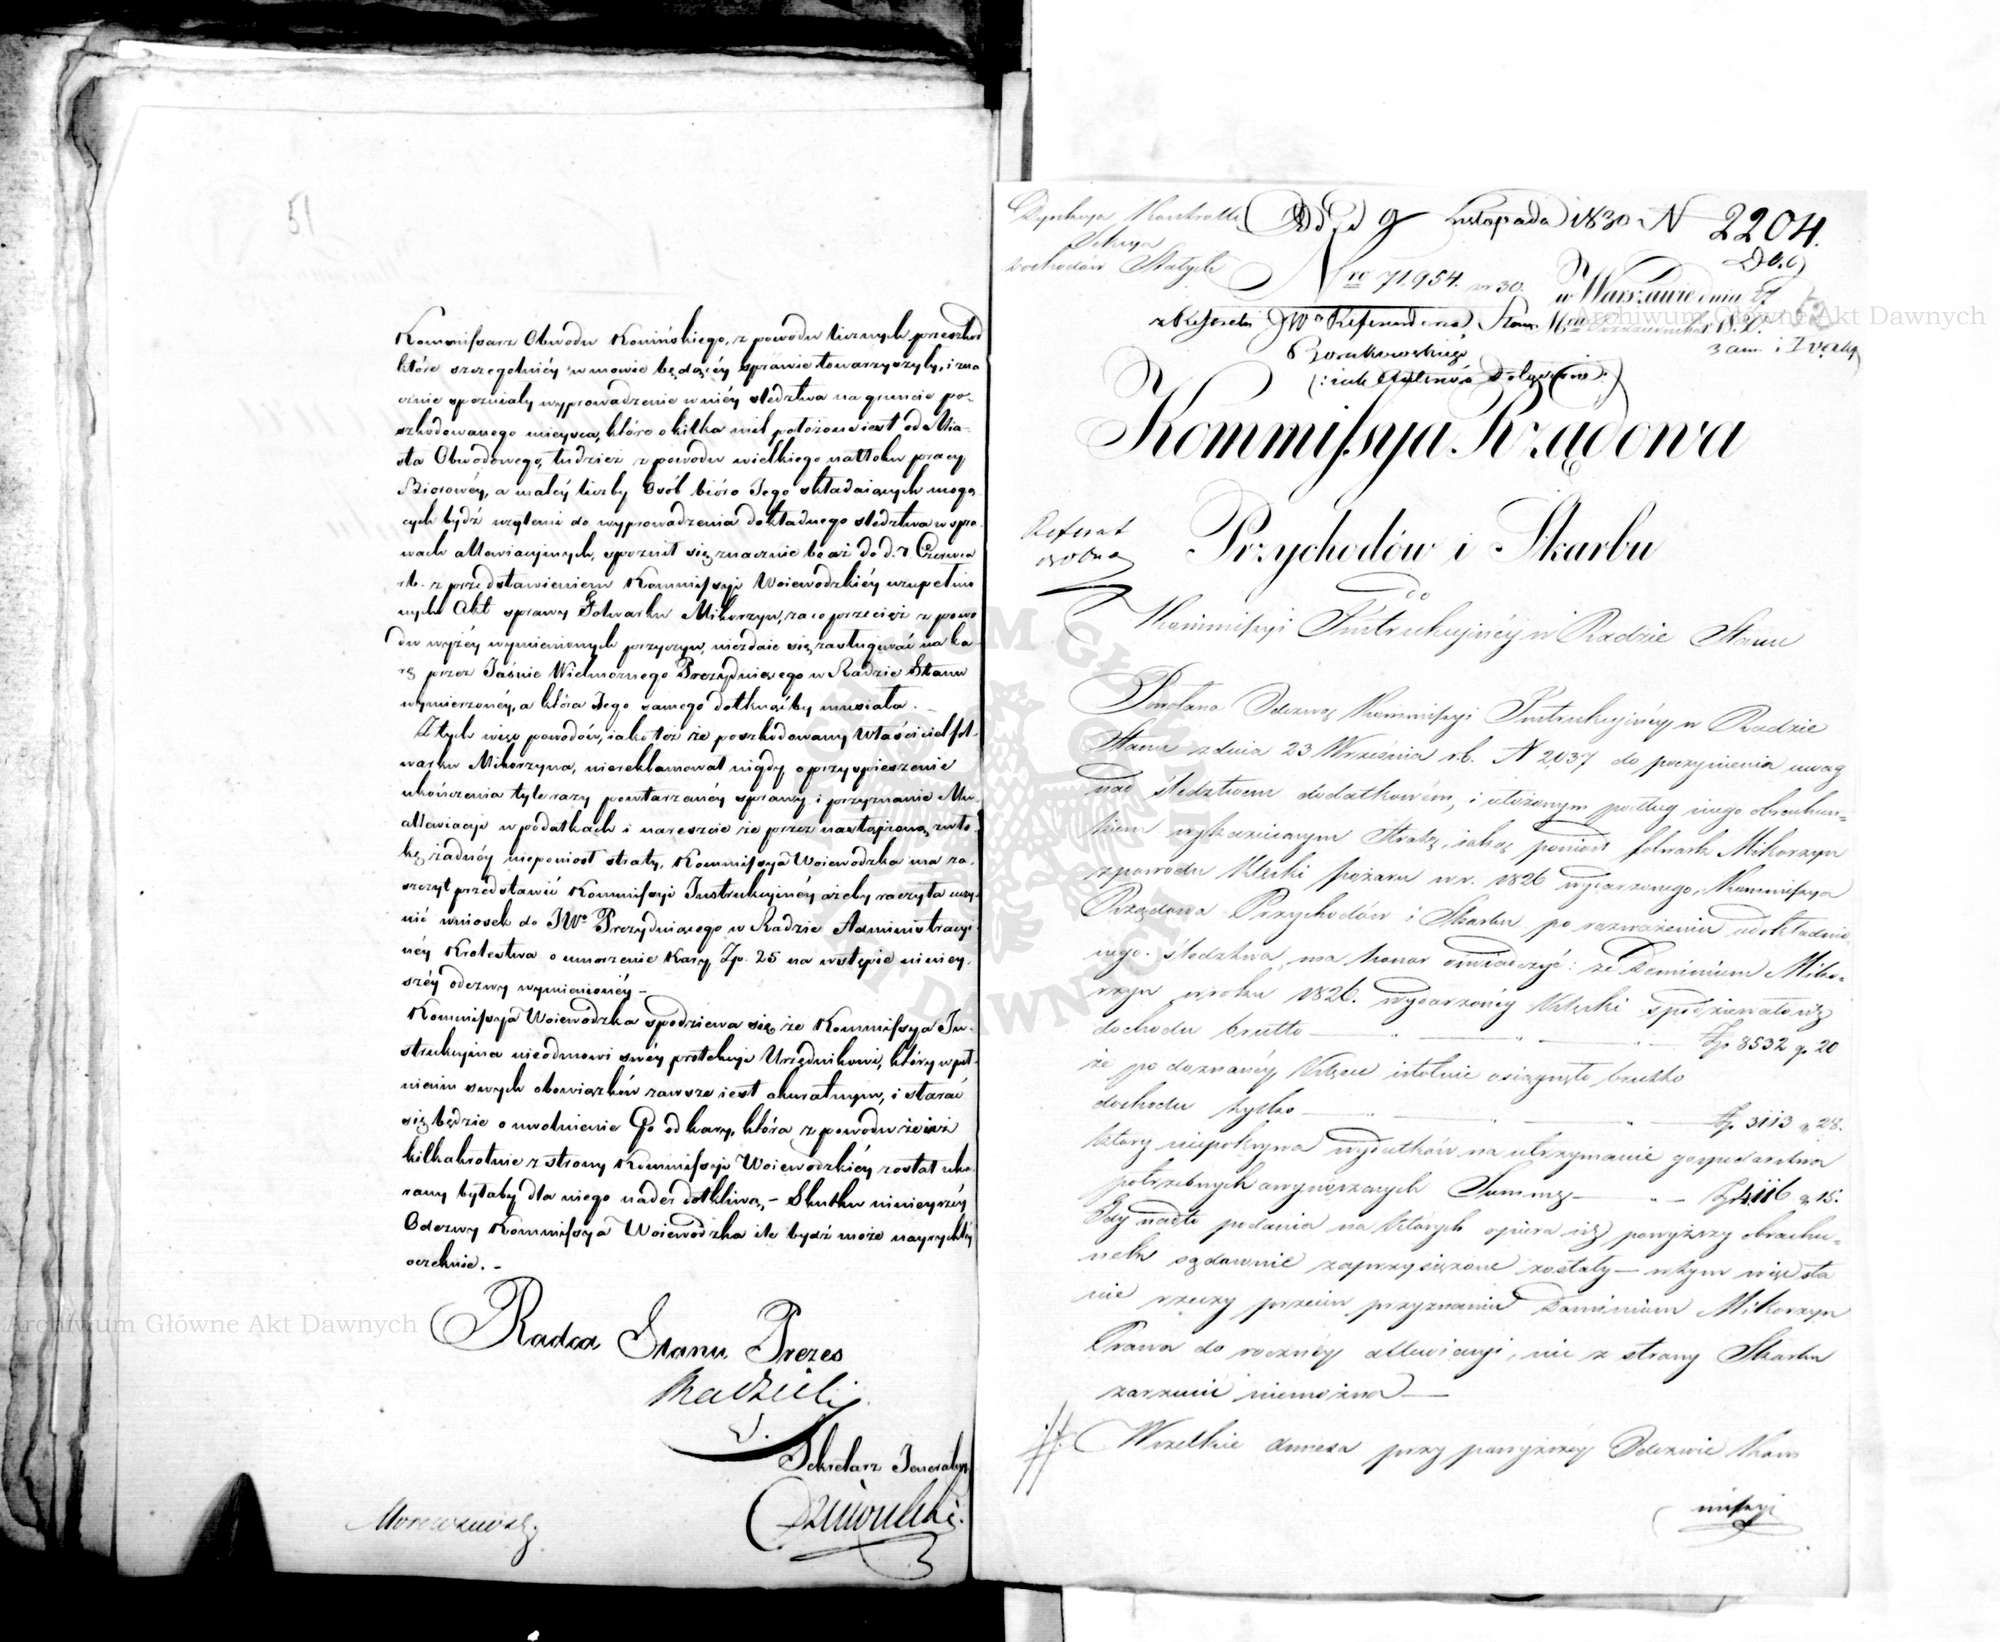 51
Kommissarz Obwodu Konińskiego, z powodu licznych przeszkod
które szczegolniéy w mowie będącéy sprawie towarzyszyły, i zna
cznie spozniały wyprowadzenie w niéy sledztwa na gruncie po-
szkodowanego mieysca, które o kilka mil położone iest od Mia-
sta Obwodowego, tudzież z powodu wielkiego natłoku pracy
Biorowéy, a małéy liczby Osób bióro Jego składaiących mogą-
cych bydź użytemi do wyprowadzenia dokładnego sledztwa w spra-
wach allewiacyinych, spoznił się znacznie bo aż do d. 7 Czerwca
r.b. z przedstawieniem Kommissyi Woiewodzkiéy uzupełnio
nych Akt sprawy Folwarku Mikorzyn, za co przecież z powo
du wyżéy wymienionych przyczyn, niezdaie się zasługiwać na ka-
rę przez Jaśnie Wielmożnego Prezyduiącego w Radzie Stanu
wymierzonéy, a która Jego samego dotknąćby musiała. _
Z tych więc powodów, iako też że poszkodowany Właściciel fol-
warku Mikorzyna, niereklamował nigdy o przyspieszenie
ukończenia tyle razy powtarzanéy sprawy i przyznanie Mu
allewiacyi w podatkach i nareszcie że przez nastąpioną zwło-
kę żadnéy nieponiosł straty, Kommissya Woiewodzka ma za-
szczyt przedstawić Kommissyi Instrukcyinéy ażeby raczyła uczy-
nić wniosek do JWo Prezyduiącego w Radzie Administracyi-
néy Królestwa o umorzenie Kary Zp. 25 na wstępie ninicy-
széy odezwy wymienionéy -
Kommissya Woiewódzka spodziewa się że Kommissya In-
strukcyina nieodmowi swéy protekcyi Urzędnikowi, który w peł-
nieniu swych obowiązków zawsze iest akuratnym, i starać
się będzie o uwolnienie Go od kary, która z powodu że iuż
kilkakrotnie z strony Kommissyi Woiewodzkiéy został uka-
rany byłaby dla niego nader dotkliwą. - Skutku ninieyszéy
Odezwy Kommissya Woiewódzka ile bydź może nayrychléy
oczekuie. -
Radca Stanu Prezes
Sekretarz Jeneralny
Dyrekcya Kontrolli
Sekcya
Dochodów Stałych
9 Listopada 1830 N 2204.
Nro 71,954. w 30. w Warszawie dnia
z Referatu JWo Referendarza Stanu
Kommissya Rządowa
Referat
Przychodów i Skarbu
Do
Kommissyi Instrukcyinéy w Radzie Stanu
Powołana Odezwą Kommissyi Instrukcyinéy w Radzie
Stanu z dnia 23 Września r.b. N 2,037 do poczynienia uwag
nad śledztwem dodatkowém, i ułożonym podług niego obrachun-
kiem wykazuiącym Stratę, iaką poniosł folwark Mikorzyn
z powodu klęski pożaru w r. 1826 wydarzonego, Kommissya
Rządowa Przychodów i Skarbu po rozważeniu udokładnio
nego śledztwa, ma honor oświadczyć: że Dominium Miko-
rzyn w roku 1826. wydarzonéy klęski spodziewało się
dochodu brutto — Zp 8532 g. 20
że po doznanéy klęsce istotnie osiągnęło brutto
dochodu tylko — Zp. 3113 g. 28.
który niepokrywa wydatków na utrzymanie gospodarstwa
potrzebnych wynoszących Summę — Zp 4,116 g. 15.
Gdy nadto podania na których opiera się powyższy obrachu-
nek sądownie zaprzysiężone zostały — w tym więc sta
nie rzeczy przeciw przyznaniu Dominium Mikorzyn
Prawa do roczney allewiacyi, nic z strony Skarbu
zarzucić niemożna —
Wszelkie dowesa przy powyższéy Odezwie Kom
missyi
Archiwum Główne Akt Dawnych
Archiwum Główne Akt Dawnych